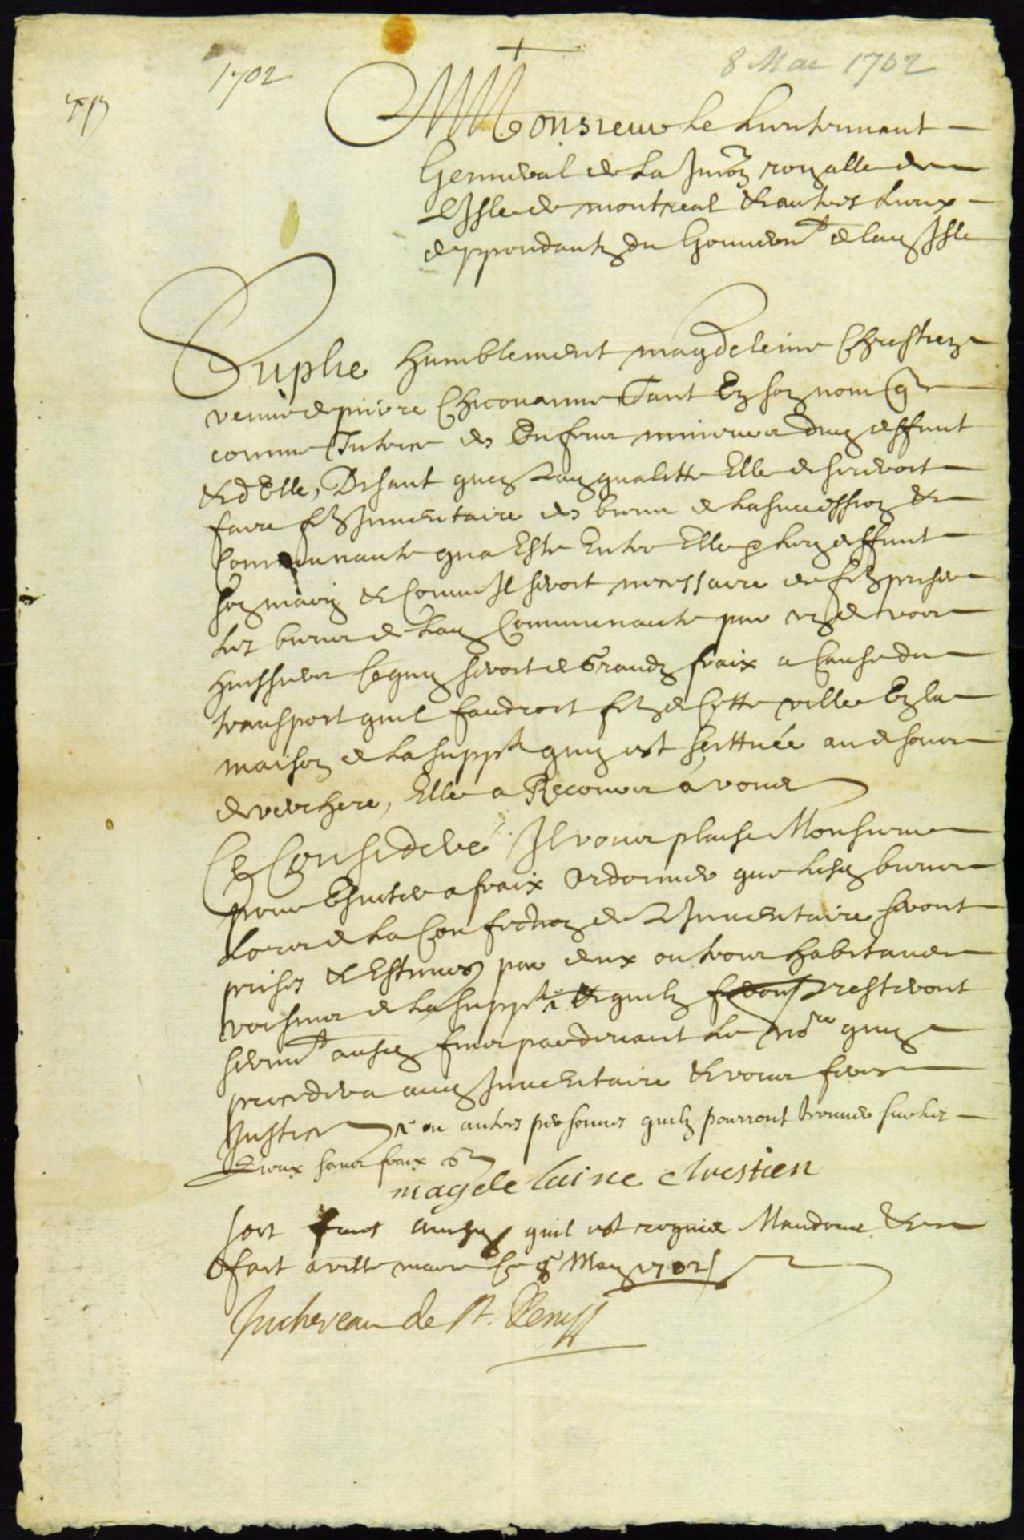 1702
8 Mai 1702
Monsieur Le Lieutennant
Genneral de La Jurion royalle de
L'Isle de montreal & autres Lieux
deppendants du Gouvernt de lad Isle
Suplie humblement magdeleine Chrestien
veuve de pierre Chicouanne Tant En son nom que
comme Tutrice des Enfens mineurs dud deffunt
& d'Elle, Disant quen Lad qualitte Elle desireroit
faire fe Inventaire des biens de La Succession &
Communauté qui a Esté Entre Elle & led deffunt
son mary & Comme Il seroit necessaire de fe priser
Les biens de Lad Communauté par un de vos
huissiers Ce quy seroit de Grands fraix a Cause du
transport quil faudroit fe de Cette ville En la
maison de La supplte quy est scittuée au desous
de verchere, Elle a Recours a vous
Ce Consideré Il vous plaise Monsieur
pour Esviter a fraix Ordonner que Lesd biens
Lors de La Confection de L Inventaire seront
prisés & Estimés par deux ou trois habitans
voisins de La supplte & quils presteront
sermt aud fins pardevant Le nore quy
procedera aud Inventaire & vous ferez
Justice ou autres personnes quils pourront trouver sur les
Lieux sans faux
magdelaine chrestien
soit fait ainsy quil est requis Mandons &
fait a ville marie Ce 8 May 1702
Juchereau de St. Denys